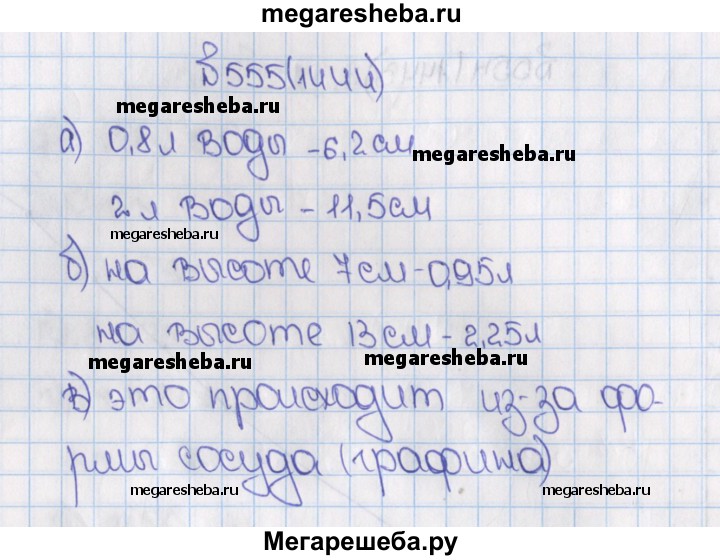 megaresheba.ru
№555(1444)
megaresheba.ru
а) 0,8л воды - 6,2см
megaresheba.ru
2 л воды - 11,5см
megaresheba.ru
б) на высоте 7см - 0,95л
на высоте 13см - 2,25л
megaresheba.ru
megaresheba.ru
в) это происходит из-за фо-
рмы сосуда (графина)
megaresheba.ru
megaresheba.ru
Мегарешеба.ру